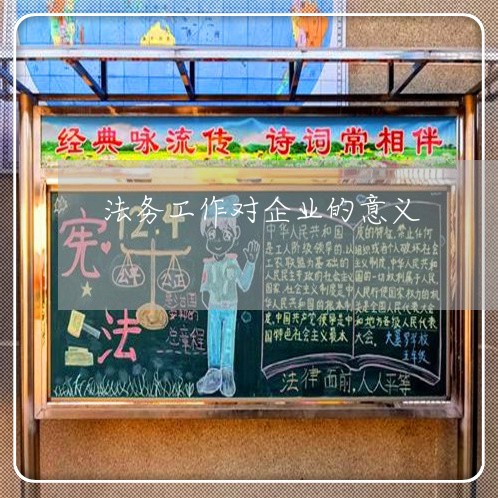 经典咏流传 诗词常相伴
法务工作对企业的意义
12.4
宪
法
公平
公正
总章程
中华人民共和国
是工人阶级领导的,以
工农联盟为基础的
人民民主专政的社会主义
国家,社会主义制度是中
华人民共和国的根本制
度,中国共产党领导是中
国特色社会主义最本
质的特征,禁止任何
组织或者个人破坏社会
主义制度,中华人民共和
国的一切权利属于人民,
人民行使国家权力的机
关是全国人民代表大会
和地方各级人民代表
大会。
五年级
法律面前,人人平等